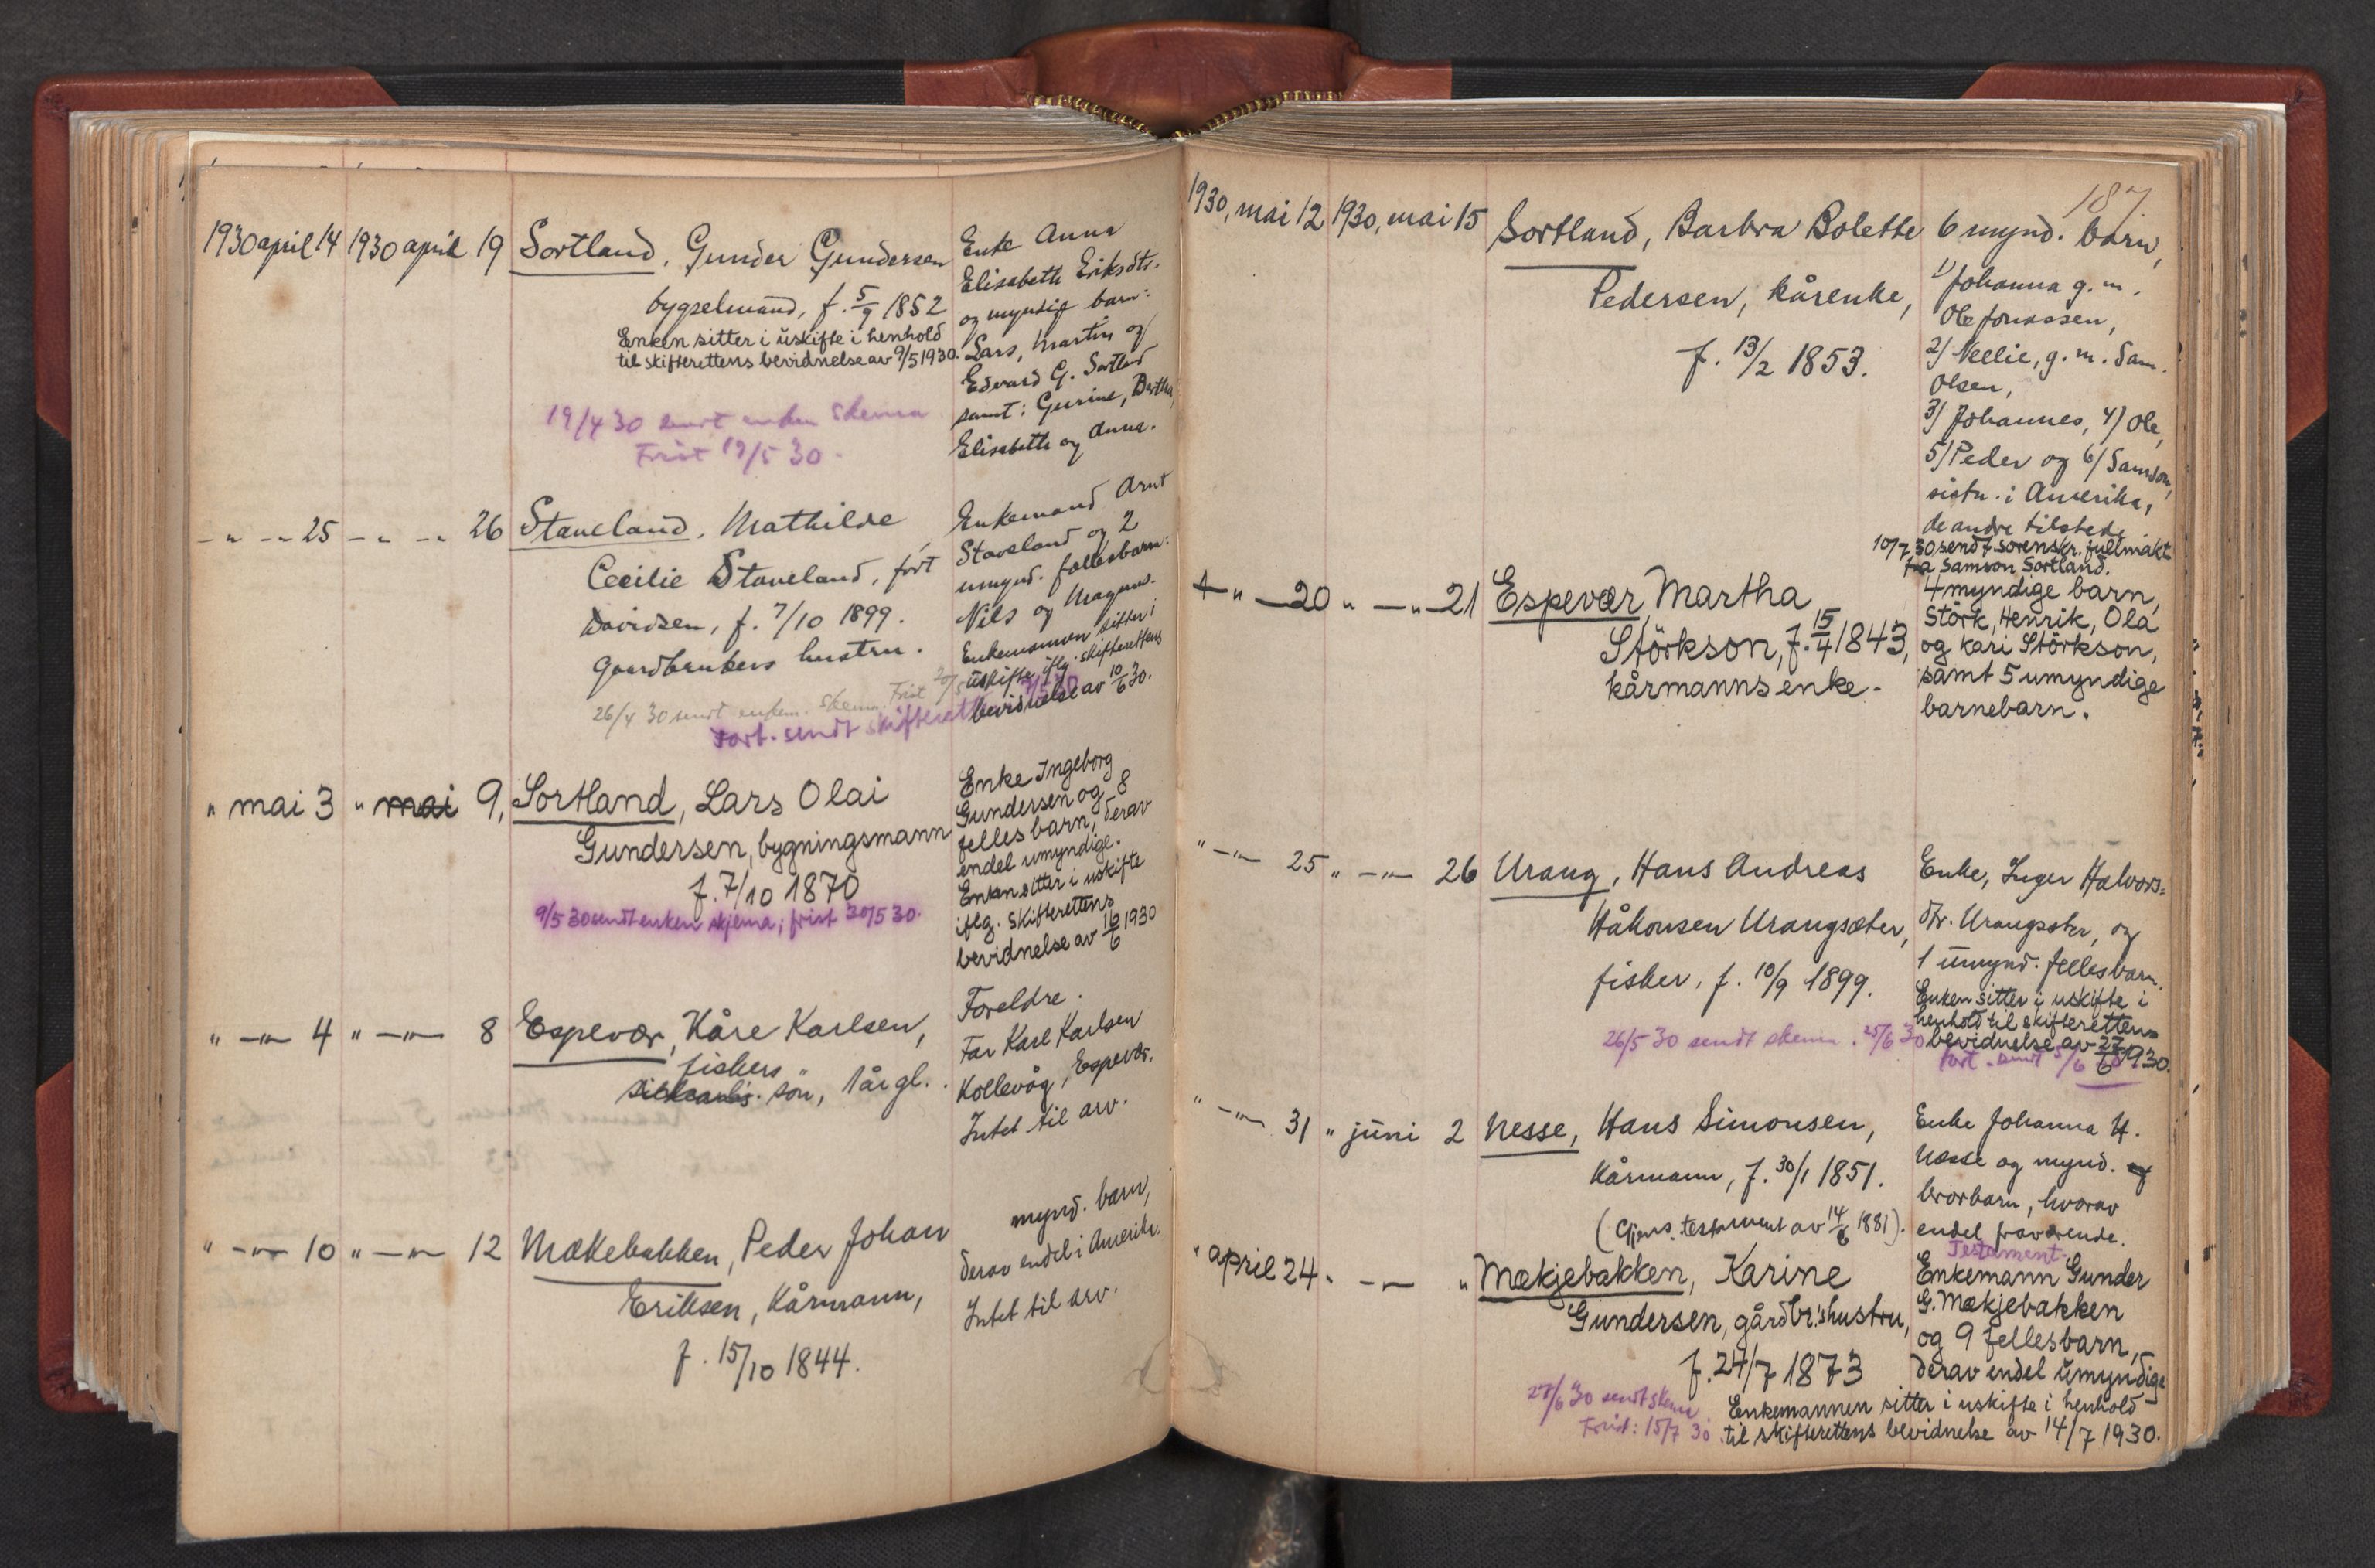 1930 april 14 1930 april 19 Sortland, Gunder Gundersen
bygselmand, f. 5/9 1852
Enken sitter i uskifte i henhold
til skifterettens bevidnelse av 9/5 1930.
19/4 30 sendt enken skema
Frist 19/5 30.
Enke Anna
Elisabeth Eriksdtr.
og myndig barn:
Lars, Martin og
Edvard G. Sortland
samt: Gurine, Bertha,
Elisabeth og Anna.
- " - " 25 - " - " 26 Staveland, Mathilde
Cecilie Staveland, født
Davidsen, f. 7/10 1899.
Gaardbrukers hustru.
26/4 30 sendt enkem. skema. Frist
fort. sendt skifterett
Enkemand Arnt
Staveland og 2
umynd. fællesbarn:
Nils og Magnus.
Enkemannen sitter i
uskifte iflg. skifterettens
bevidnelse av 10/6 30.
" mai 3 " mai 9, Sortland, Lars Olai
Gundersen, bygningsmann
f. 7/10 1870
9/5 30 sendt enken skjema; frist 30/5 30.
Enke Ingeborg
Gundersen og 8
felles barn, derav
endel umyndige.
Enken sitter i uskifte
iflg. skifterettens
bevidnelse av 16/6 1930
" -"- 4 " -"- 8 Espevær, Kåre Karlsen,
fiskers
søn, 1 år gl.
Foreldre.
Far Karl Karlsen
Kollevåg, Espevær.
Intet til arv.
" -"- 10 " -"- 12 Mækebakken, Peder Johan
Eriksen, Kårmann,
f. 15/10 1844.
mynd. barn,
derav endel i Amerika.
Intet til arv.
187.
1930, mai 12 1930, mai 15 Sortland, Barbra Bolette
Pedersen, kårenke,
f. 13/2 1853.
6 mynd. barn,
1) Johanna g. m.
Ole Jonassen,
2/ Nellie, g. m. Sam.
Olsen,
3/ Johannes, 4) Ole,
5/ Peder og 6/ Samson,
sistn. i Amerika,
de andre tilstede
10/7 30 sendt sorenskr. fullmakt
fra Samson Sortland.
" - 20 " -"- 21 Espevær Martha
Störkson, f. 15/4 1843,
kårmanns enke.
4 myndige barn,
Störk, Henrik, Ola
og Kari Störkson,
samt 5 umyndige
barnebarn.
" -"- 25 " -"- 26 Urang, Hans Andreas
Håkonsen Urangsæter,
fisker, f. 10/9 1899.
26/5 30 sendt skema. 25/6 30
Enke, Inger Halvors-
dtr. Urangsæter, og
1 umynd. fellesbarn.
Enken sitter i uskifte i
henhold til skifterettens
bevidnelse av 27/6 1930.
fort. sendt 5/6
" -"- 31 " juni 2 Nesse, Hans Simonsen,
Kårmann, f. 30/1 1851.
(Gjens. testament av 14/6 1881).
Enke Johanna H.
Nesse og mynd. og
brorbarn, hvorav
endel fraværende.
Testament.
" april 24 " - - " Mækjebakken, Karine
Gundersen, gårdbr.'s hustru,
f. 24/7 1873
27/6 30 sendt skema
Frist: 15/7 30
Enkemann Gunder
G. Mækjebakken
og 9 fellesbarn,
derav endel umyndig
Enkemannen sitter i uskifte i henhold
til skifterettens bevidnelse av 14/7 1930.